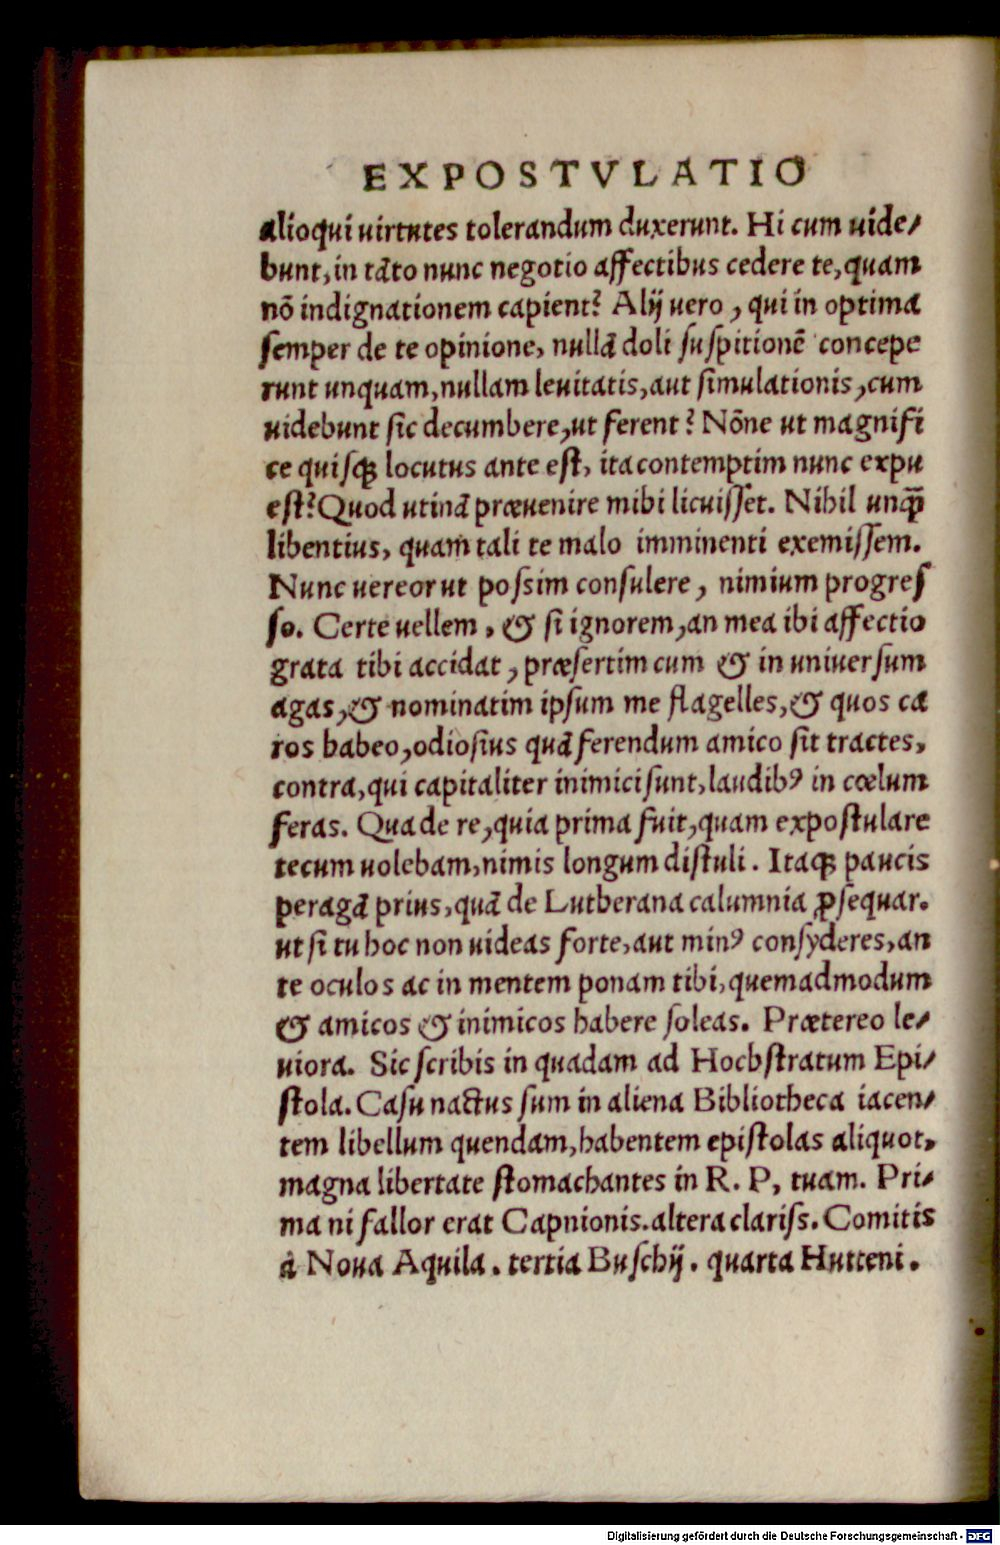 EXPOSTVLATIO
alioqui uirtutes tolerandum duxerunt. Hi cum uide/
bunt, in tãto nunc negotio affectibus cedere te, quam
nõ indignationem capient? Alij uero, qui in optima
ſemper de te opinione, nullã doli ſuſpitionẽ concepe
runt unquam, nullam leuitatis, aut ſimulationis, cum
uidebunt ſic decumbere, ut ferent? Nõne ut magnifi
ce quiſqꝫ locutus ante eſt, ita contemptim nunc expu
eſt? Quod utinã præuenire mihi licuiſſet. Nihil unq̃
libentius, quam tali te malo imminenti exemiſſem.
Nunc uereor ut poſsim conſulere, nimium progreſ
ſo. Certe uellem, & ſi ignorem, an mea ibi affectio
grata tibi accidat, præſertim cum & in uniuerſum
agas, & nominatim ipſum me flagelles, & quos ca
ros habeo, odioſius quã ferendum amico ſit tractes,
contra, qui capitaliter inimici sunt, laudibꝰ in cœlum
feras. Qua de re, quia prima fuit, quam expoſtulare
tecum uolebam, nimis longum diſtuli. Itaqꝫ paucis
peragã prius, quã de Lutherana calumnia ꝓſequar.
ut ſi tu hoc non uideas forte, aut minꝰ conſyderes, an
te oculos ac in mentem ponam tibi, quemadmodum
& amicos & inimicos habere ſoleas. Prætereo le/
uiora. Sic ſcribis in quadam ad Hochſtratum Epi/
ſtola. Caſu nactus ſum in aliena Bibliotheca iacen/
tem libellum quendam, habentem epiſtolas aliquot,
magna libertate ſtomachantes in R. P, tuam. Pri/
ma ni fallor erat Capnionis. altera clariſs. Comitis
à Noua Aquila. tertia Buſchij. quarta Hutteni.
Digitalisierung gefördert durch die Deutsche Forschungsgemeinschaft - DFG